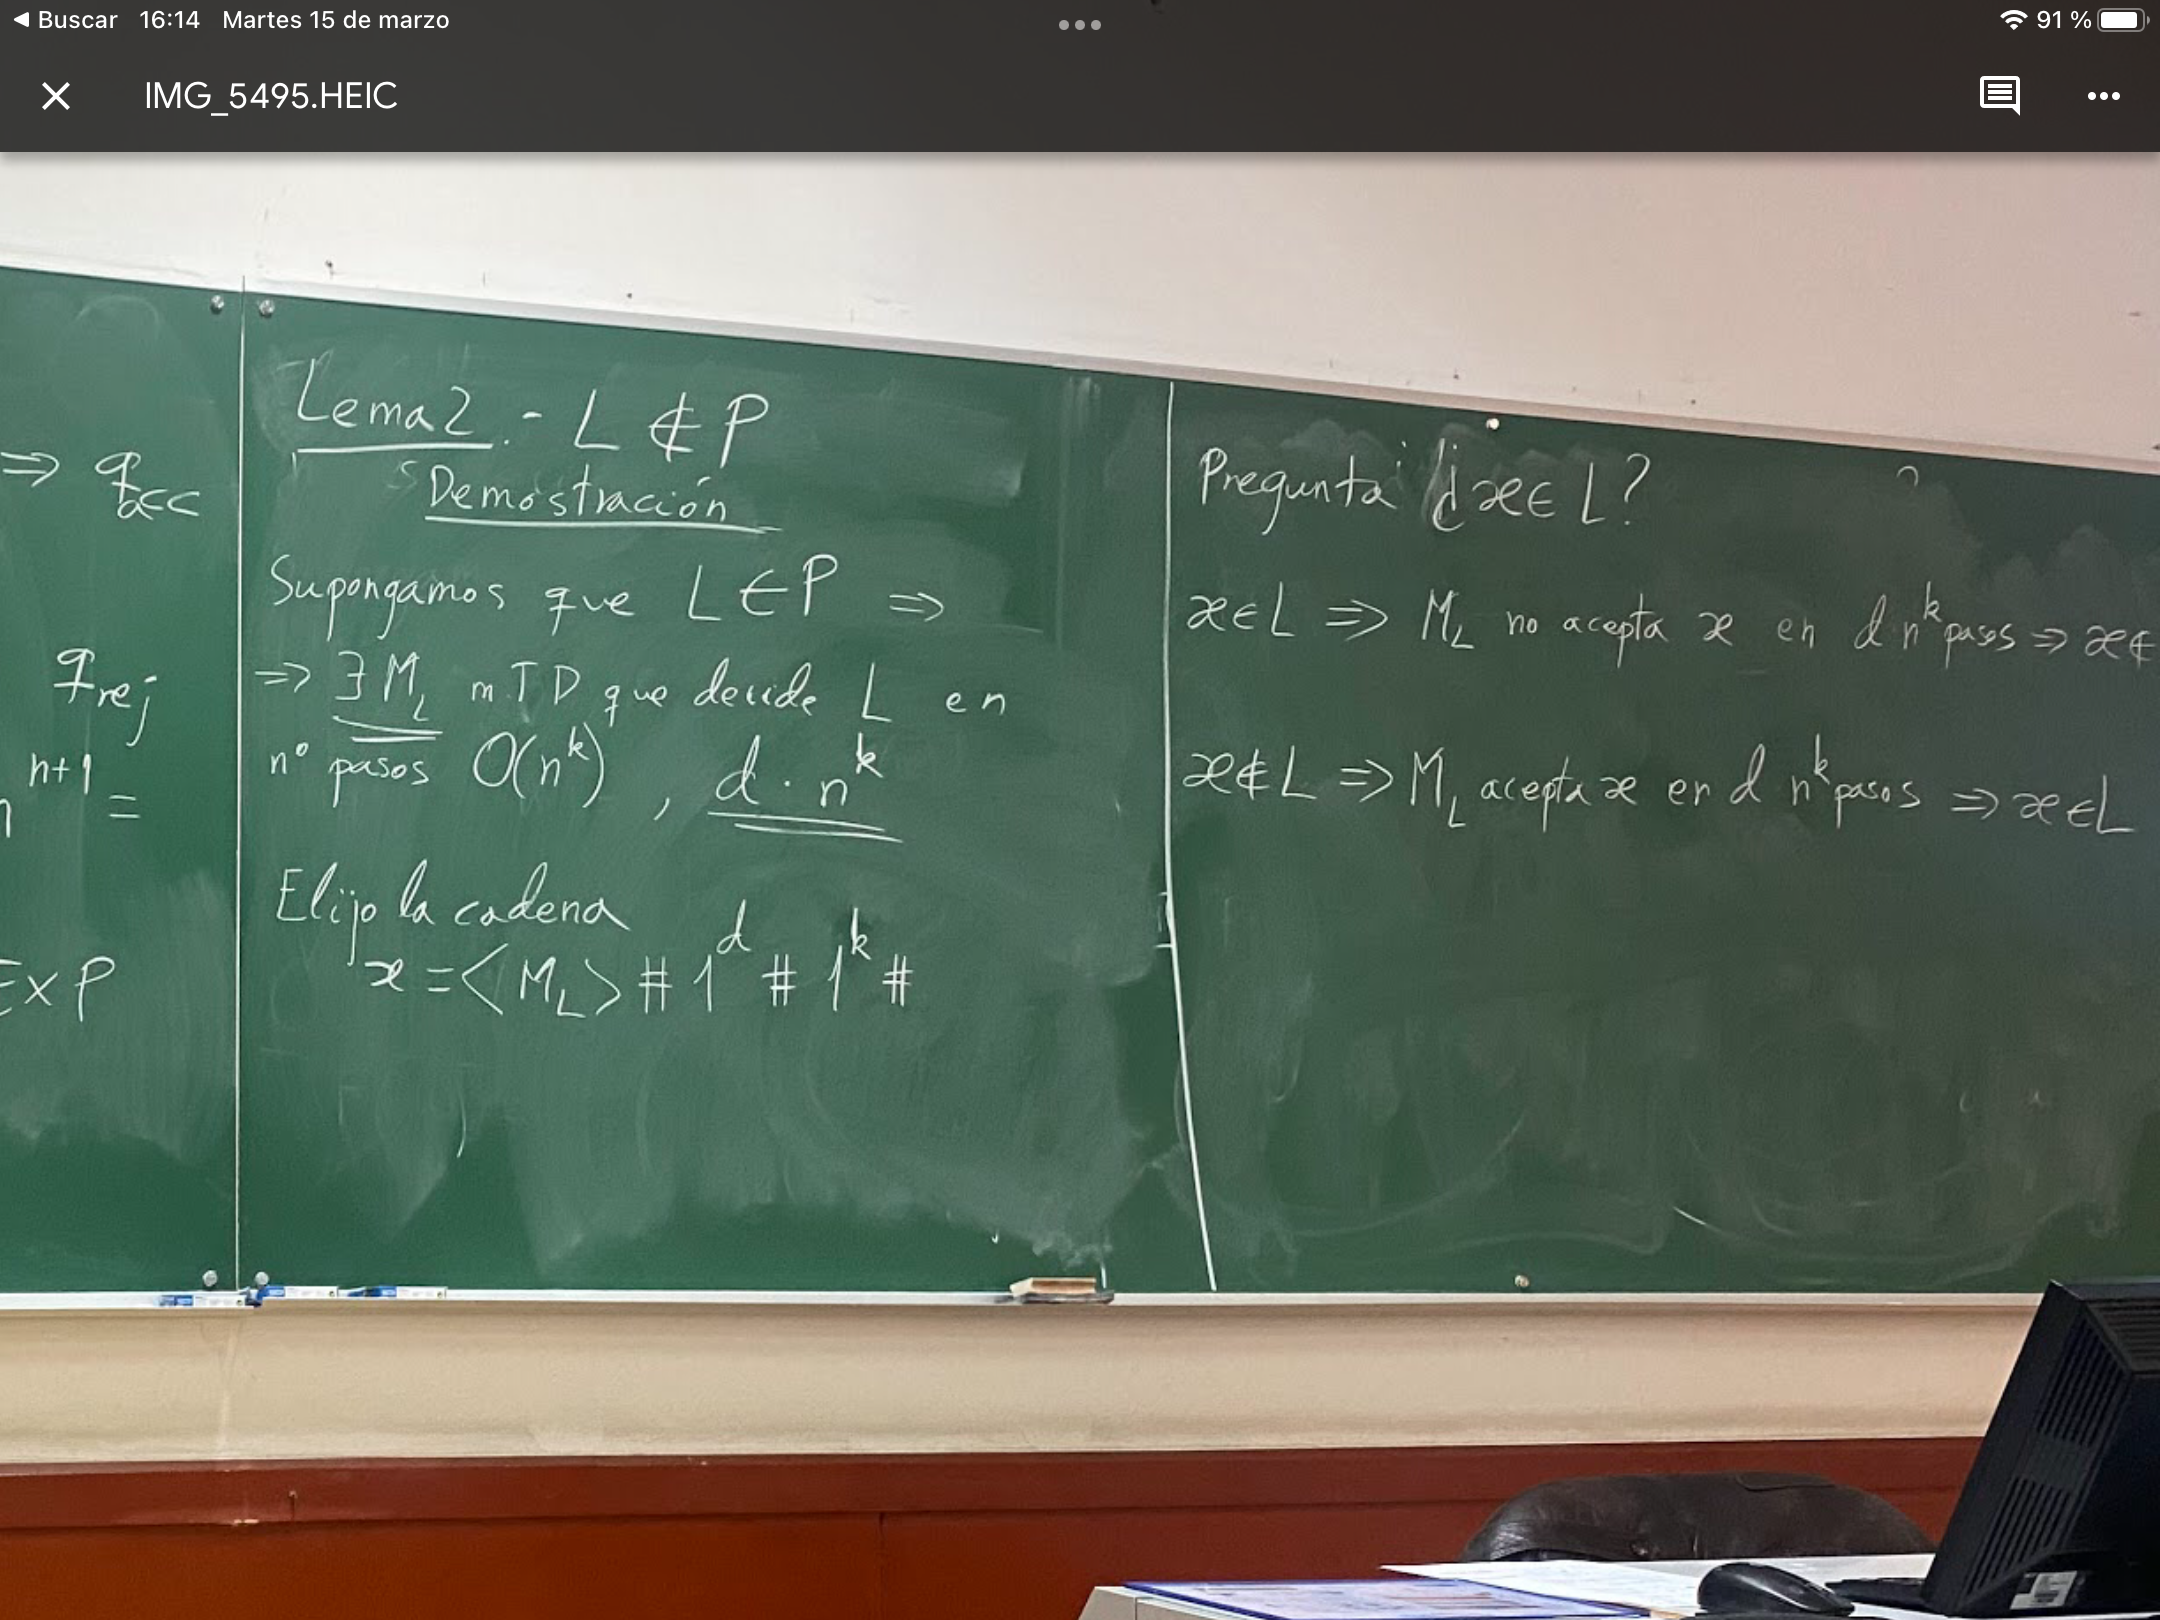 Buscar 16:14 Martes 15 de marzo 91 %
IMG_5495.HEIC
⇒ q_acc
q_rej
n^{n+1} =
EXP
Lema 2.- L ∉ P
Demostración
Supongamos que L ∈ P ⇒
⇒ ∃ M_L m.T D que decide L en
nº pasos O(n^k), d · n^k
Elijo la cadena
x = <M_L> # 1^d # 1^k #
Pregunta ¿x ∈ L?
x ∈ L ⇒ M_L no acepta x en d·n^k pasos ⇒ x ∉
x ∉ L ⇒ M_L acepta x en d n^k pasos ⇒ x ∈ L